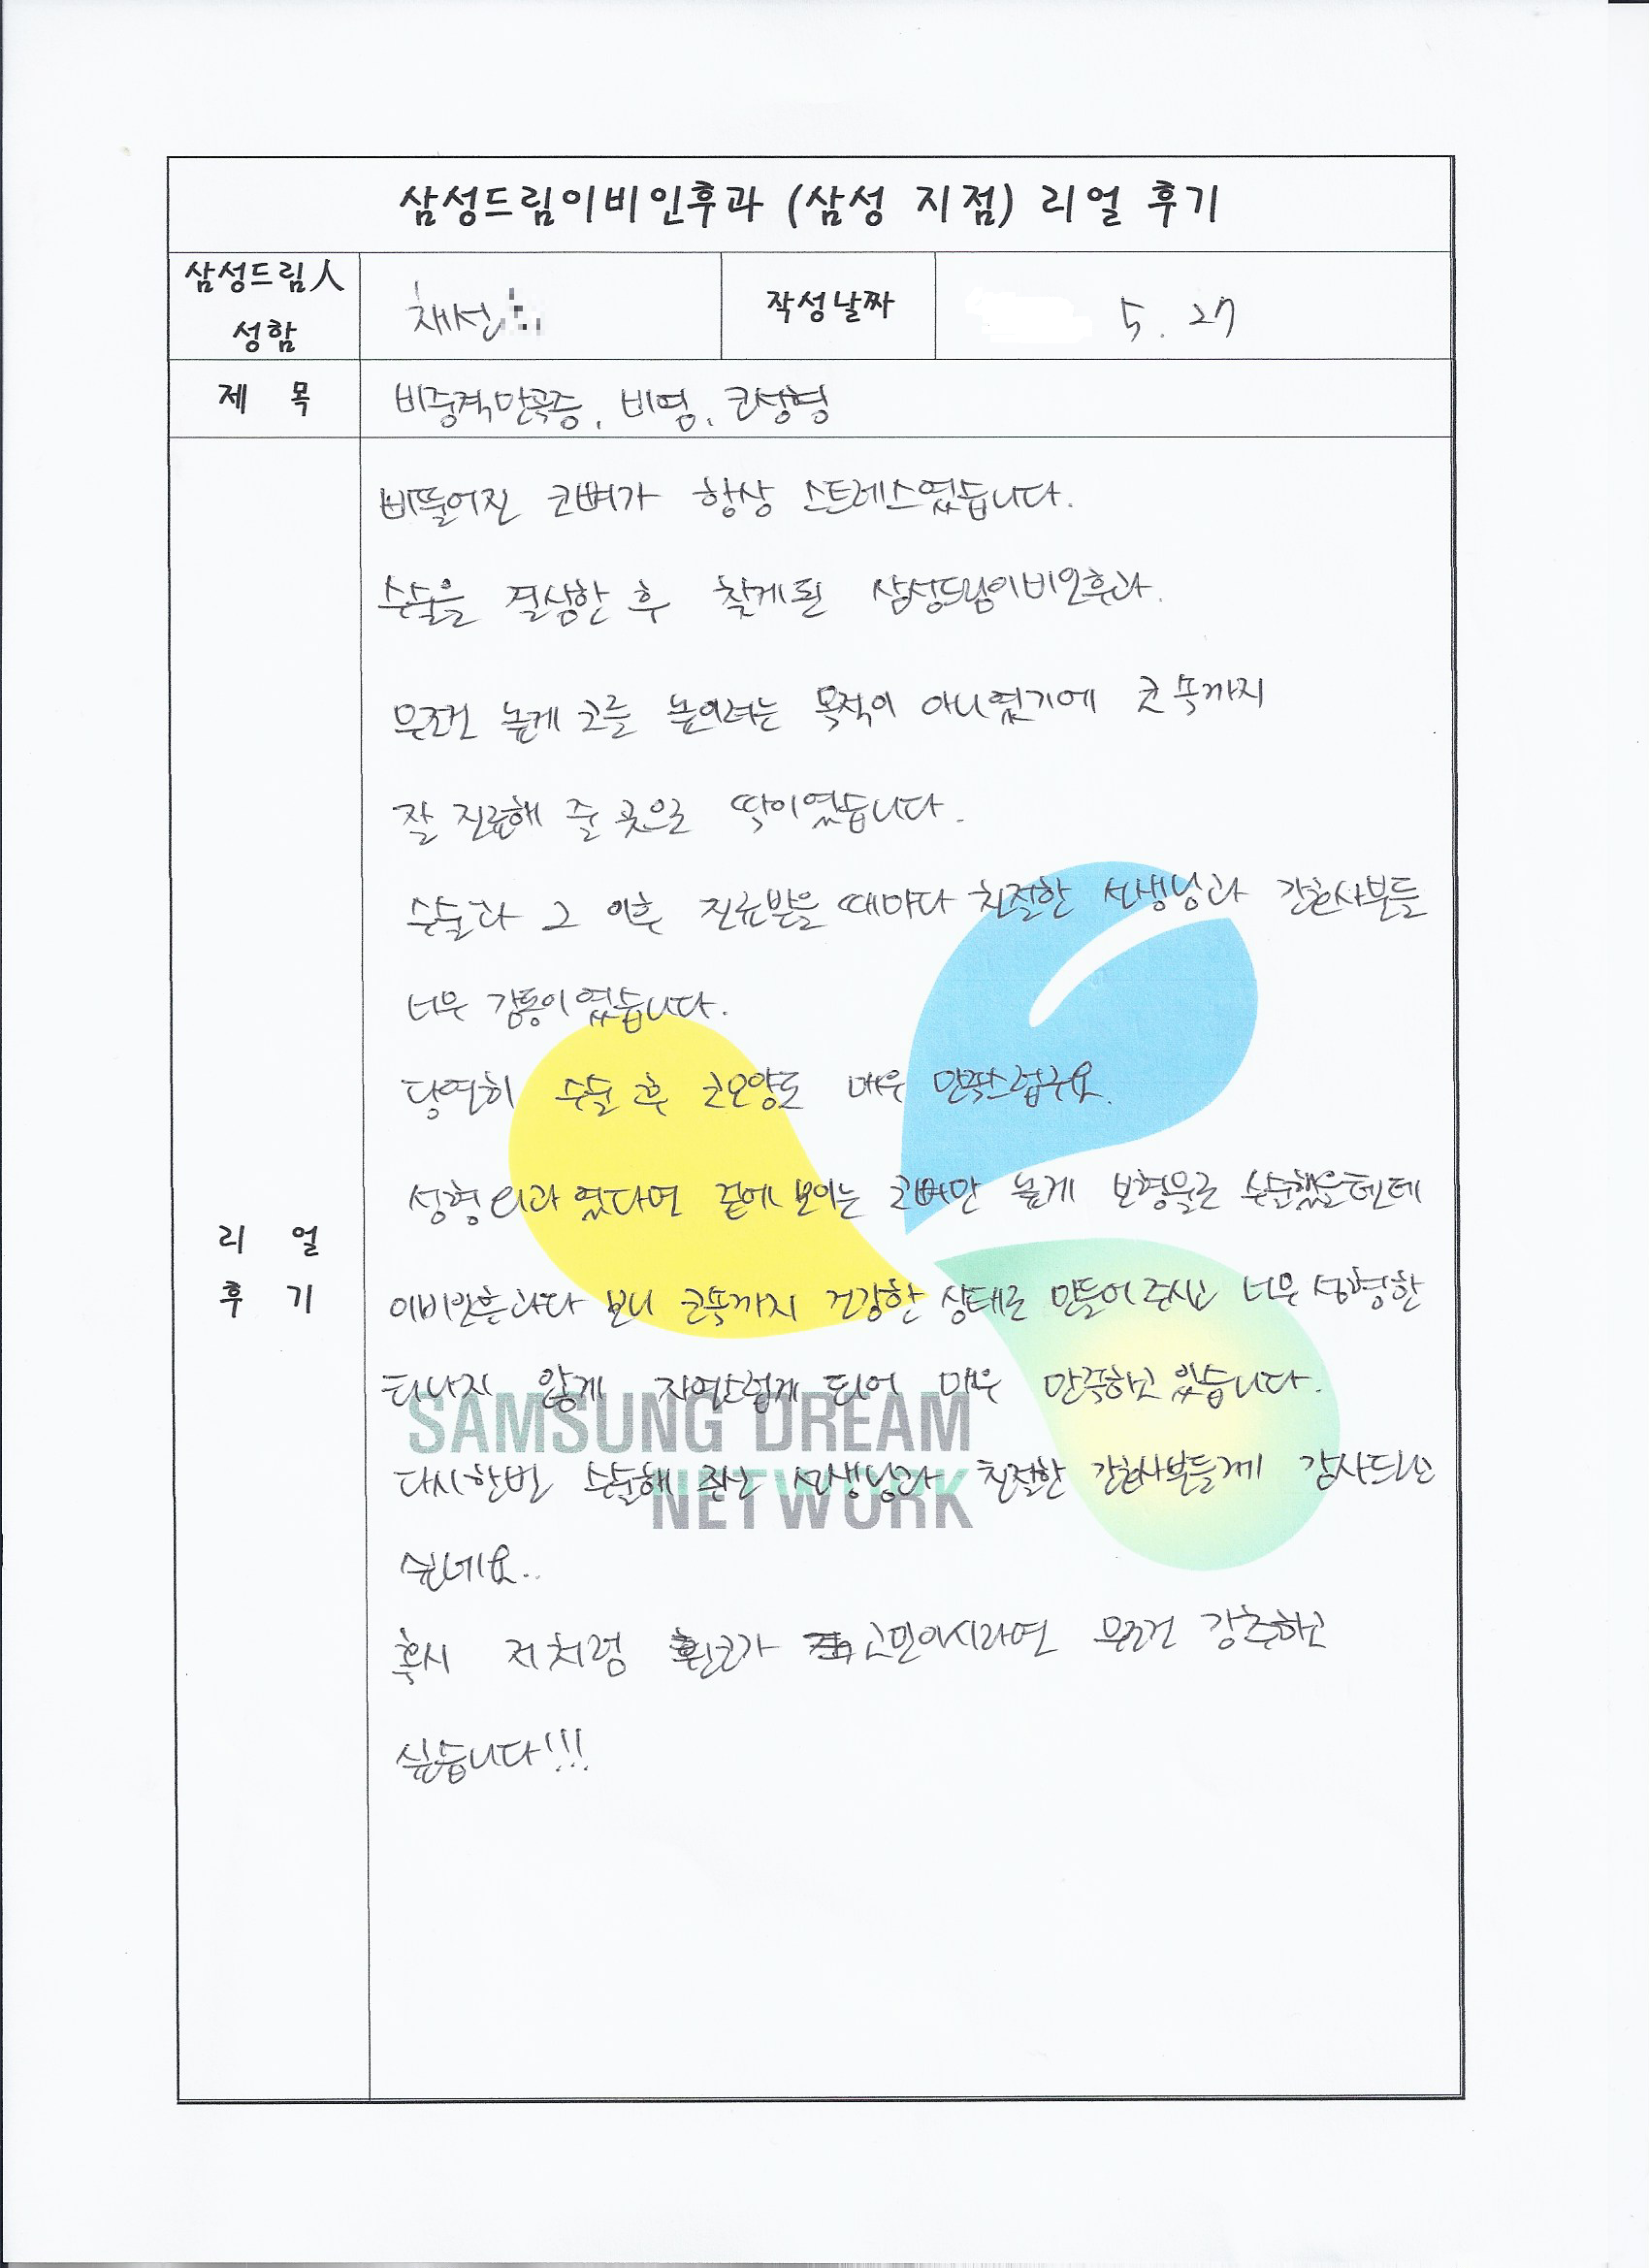 삼성드림이비인후과 (삼성 지점) 리얼 후기
삼성드림人 성함
채선
작성날짜
5. 27
제 목
비중격만곡증, 비염, 코성형
리 얼 후 기
삐뚤어진 코뼈가 항상 스트레스였습니다.
수술을 결심한 후 찾게된 삼성드림이비인후과.
무조건 높게 코를 높이려는 목적이 아니였기에 코 속까지
잘 진료해 줄 곳으로 딱이였습니다.
수술과 그 이후 진료받을 때마다 친절한 선생님과 간호사분들
너무 감동이였습니다.
당연히 수술 후 코모양도 매우 만족스럽구요.
성형외과였다면 겉에 보이는 코뼈만 높게 보형물로 수술했을텐데
이비인후과다 보니 코속까지 건강한 상태로 만들어주시고 너무 성형한
티나지 않게 자연스럽게 되어 매우 만족하고 있습니다.
SAMSUNG DREAM
다시한번 수술해 주신 선생님과 친절한 간호사분들께 감사드리고
NETWORK
싶네요..
혹시 저처럼 휜코가 고민이시라면 무조건 강추하고
싶습니다!!!